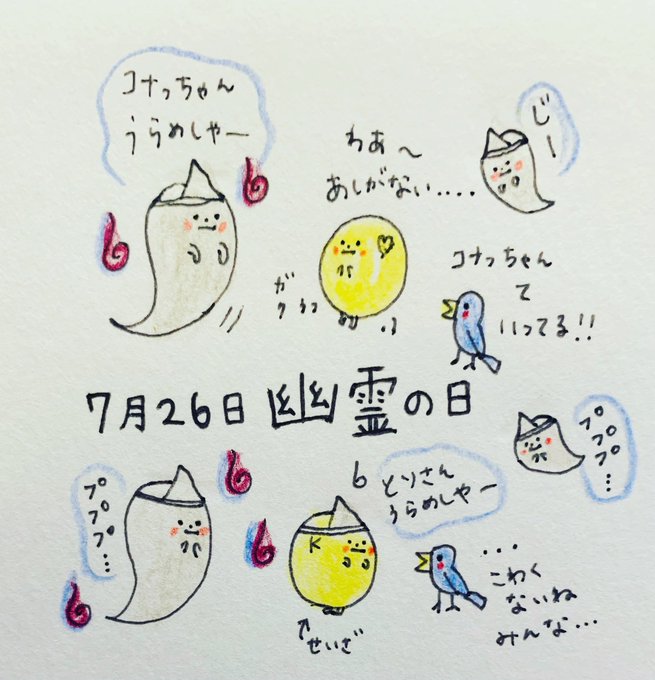 コナっちゃん
うらめしやー
わあ〜
あしがない....
じー
ガクガク
コナっちゃん
て
いってる!!
7月26日 幽霊の日
プププ...
とりさん
うらめしやー
プププ...
K
...
こわく
ないね
みんな...
↑
せいざ